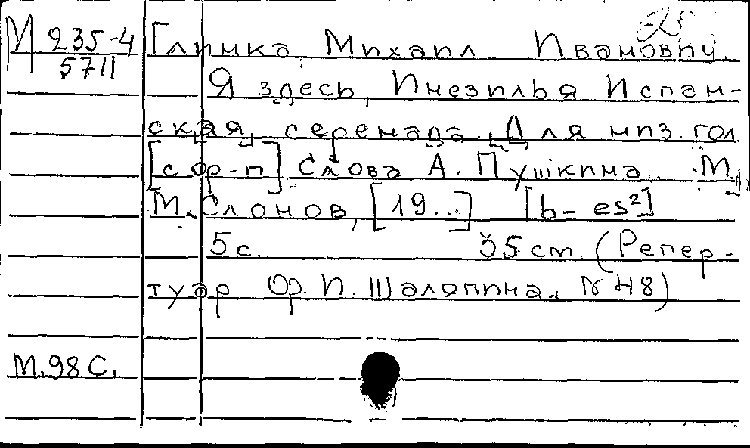 М 235-4
5711
Глинка, Михаил Иванович
Я здесь, Инезилья Испан-
ская серенада. Для низ. гол.
[с ф-п] Слова А. Пушкина. М.,
М. Слонов, [19...] [b - es²]
5 с. 35 cm (Репер-
туар Ф. И. Шаляпина. N 48)
М.98 С.